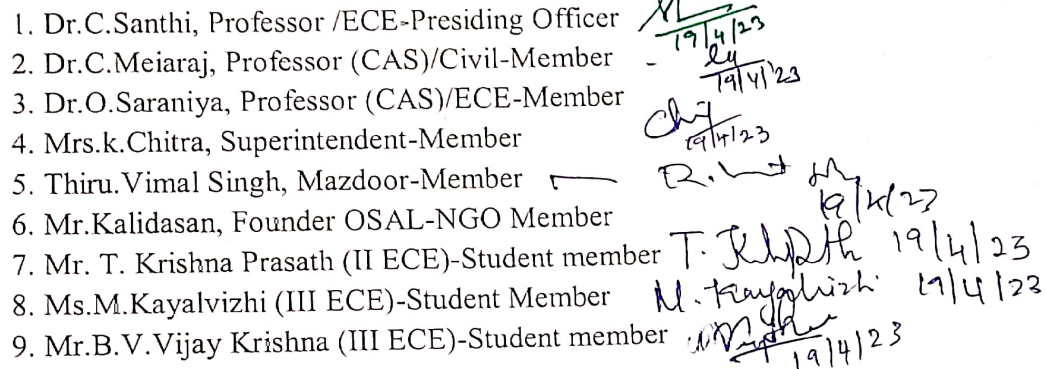 1. Dr.C.Santhi, Professor /ECE-Presiding Officer 19/4/23
2. Dr.C.Meiaraj, Professor (CAS)/Civil-Member - 19/4/23
3. Dr.O.Saraniya, Professor (CAS)/ECE-Member
4. Mrs.k.Chitra, Superintendent-Member 19/4/23
5. Thiru.Vimal Singh, Mazdoor-Member
6. Mr.Kalidasan, Founder OSAL-NGO Member 19/4/23
7. Mr. T. Krishna Prasath (II ECE)-Student member 19/4/23
8. Ms.M.Kayalvizhi (III ECE)-Student Member M. Kayalvizhi 19/4/23
9. Mr.B.V.Vijay Krishna (III ECE)-Student member 19/4/23